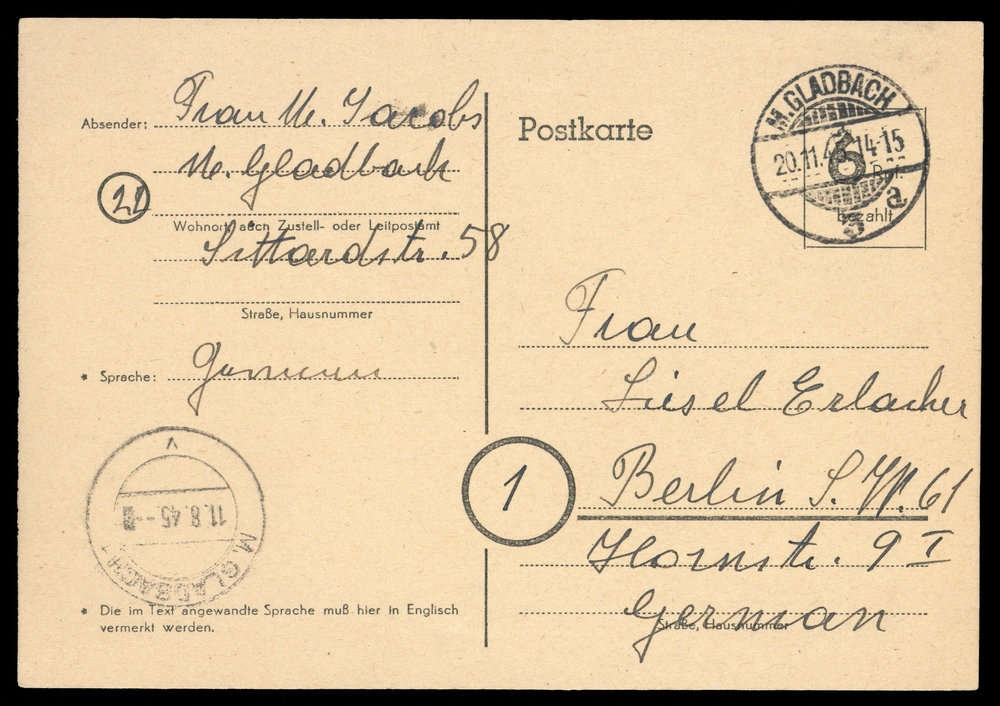 Absender: Frau M. Jacobs
M. Gladbach
22
Wohnort, auch Zustell- oder Leitpostamt
Sittardstr. 58
Straße, Hausnummer
* Sprache: German
V
11.8.45.
M. GLADBACH
* Die im Text angewandte Sprache muß hier in Englisch
vermerkt werden.
Postkarte
M. GLADBACH
20.11.4 14-15
a
6
bezahlt
Frau
Liesel Erlacher
1
Berlin S.W. 61
Hornstr. 9 I
German
Straße, Hausnummer